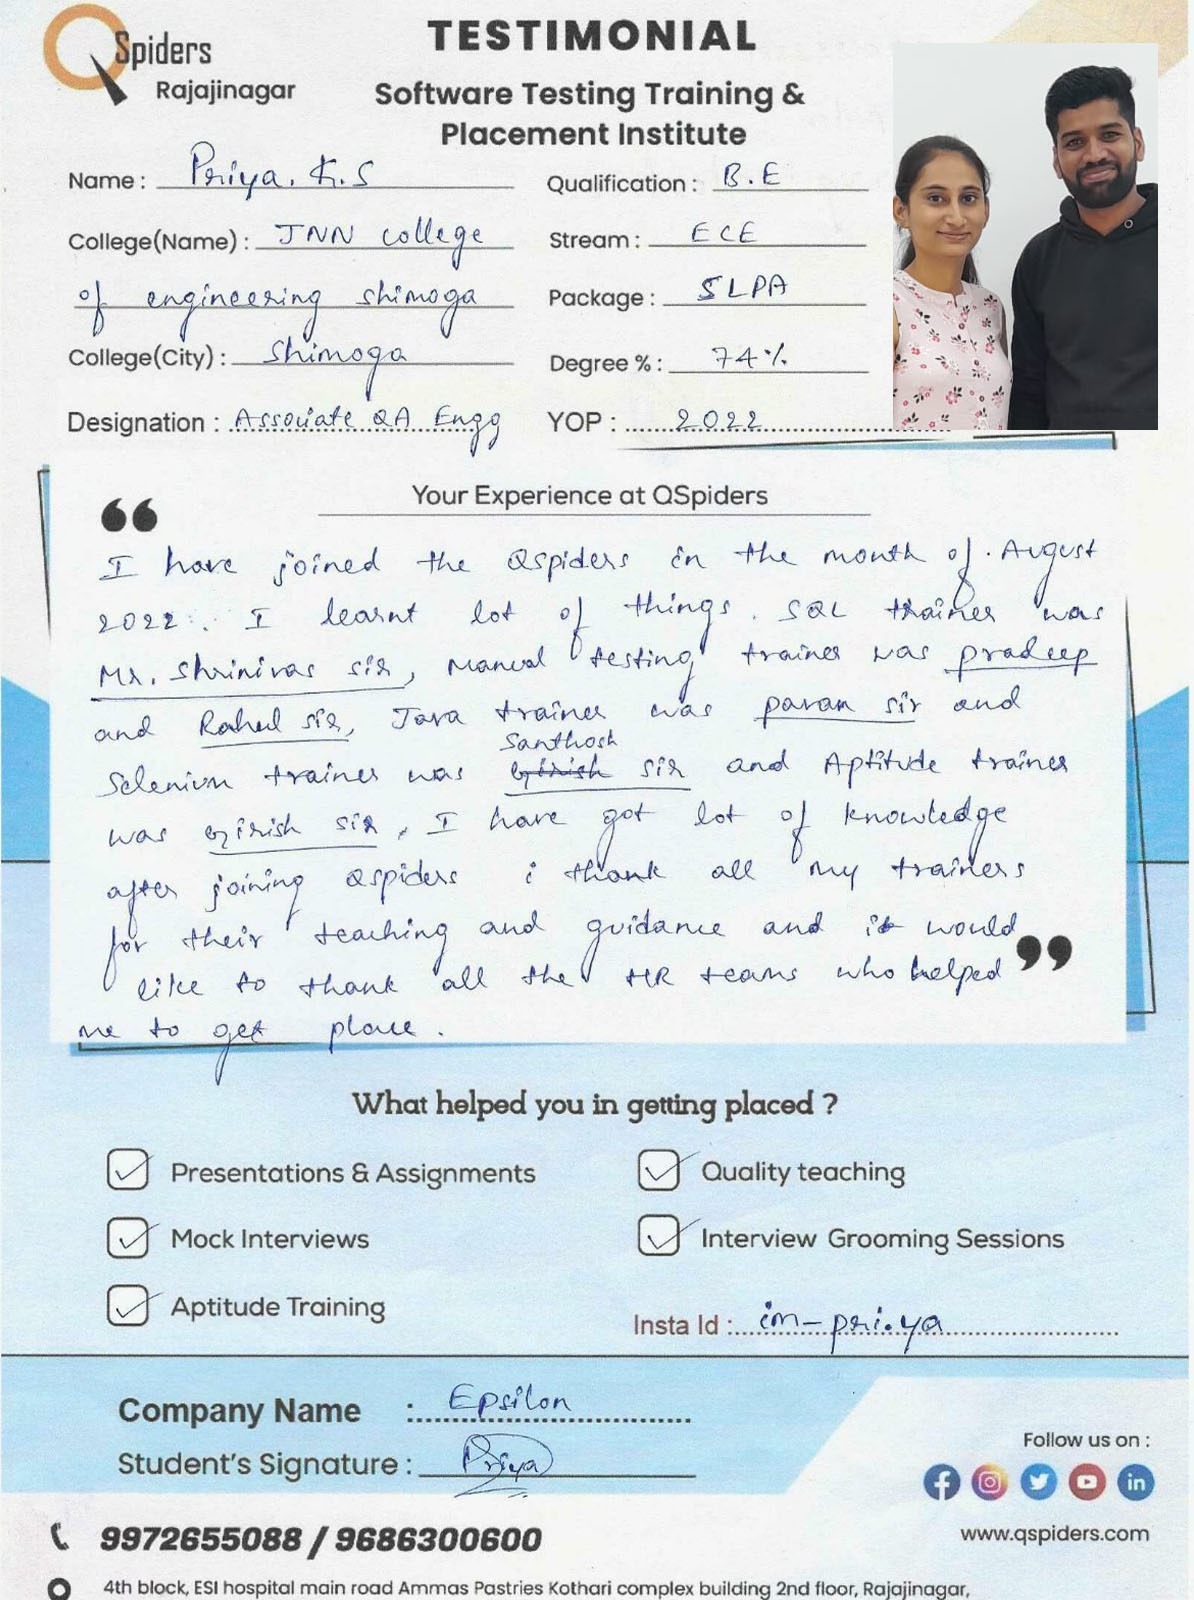 QSpiders
Rajajinagar
TESTIMONIAL
Software Testing Training &
Placement Institute
Name : Priya. K.S
Qualification : B.E
College(Name) : JNN college
Stream : ECE
of engineering shimoga
Package : 5LPA
College(City) : Shimoga
Degree % : 74%
Designation : Associate QA Engg
YOP : 2022
Your Experience at QSpiders
“
I have joined the Qspiders in the month of. August
2022. I learnt lot of things. SQL trainer was
Mr. Shrinivas sir, Manual testing trainer was pradeep
and Rahul sir, Java trainer was pavan sir and
Santhosh
Selenium trainer was Girish sir and Aptitude trainer
was Girish sir, I have got lot of knowledge
after joining Qspiders i thank all my trainers
for their teaching and guidance and it would
like to thank all the HR teams who helped ”
me to get place.
What helped you in getting placed ?
Presentations & Assignments
Quality teaching
Mock Interviews
Interview Grooming Sessions
Aptitude Training
Insta Id : im-pri.ya
Company Name : Epsilon
Student's Signature : Priya
Follow us on :
www.qspiders.com
9972655088 / 9686300600
4th block, ESI hospital main road Ammas Pastries Kothari complex building 2nd floor, Rajajinagar,